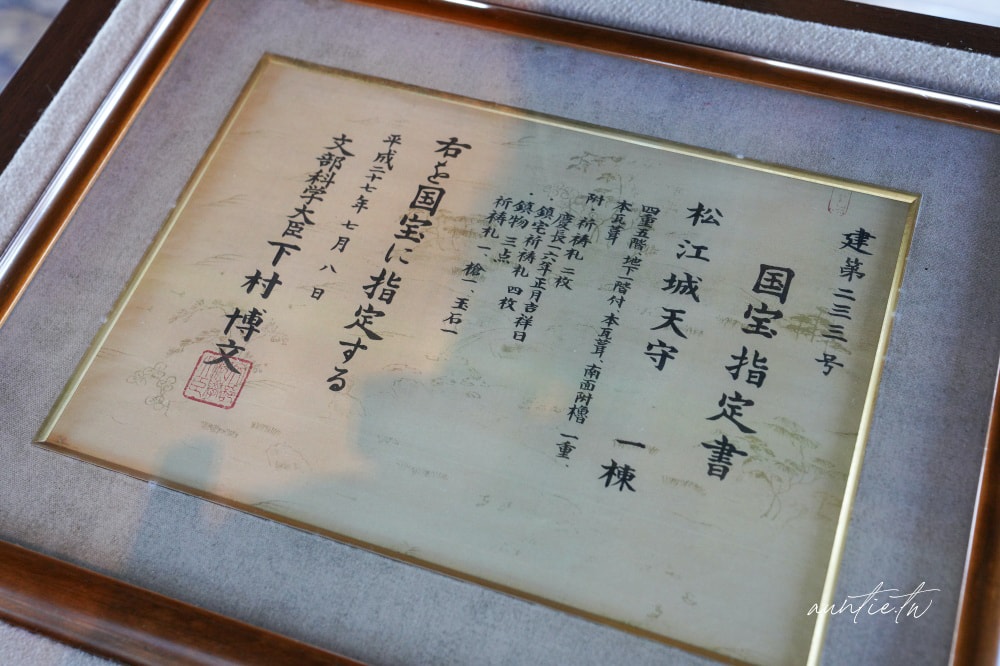 建第二三三号
国宝指定書
松江城天守 一棟
四重五階、地下一階付、本瓦葺、南面附櫓 一重、
本瓦葺
附・祈祷札 二枚
慶長十六年正月吉祥日
・鎮宅祈祷札 四枚
・鎮物 三点
祈祷札一、槍一、玉石一
右を国宝に指定する
平成二十七年七月八日
文部科学大臣 下村博文
auntie.tw